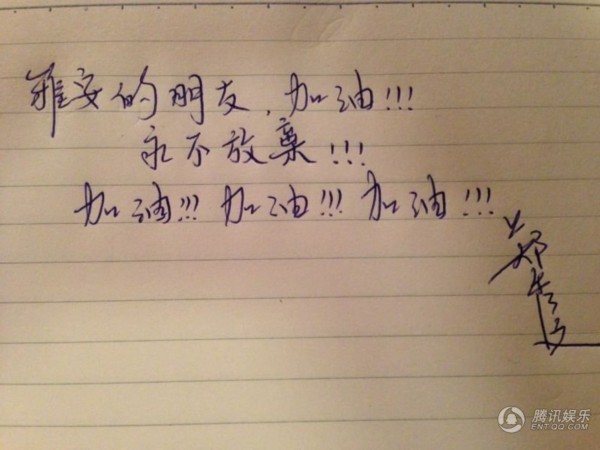 雅安的朋友，加油!!!
永不放棄!!!
加油!!! 加油!!! 加油!!!
腾讯娱乐
ENT.QQ.COM